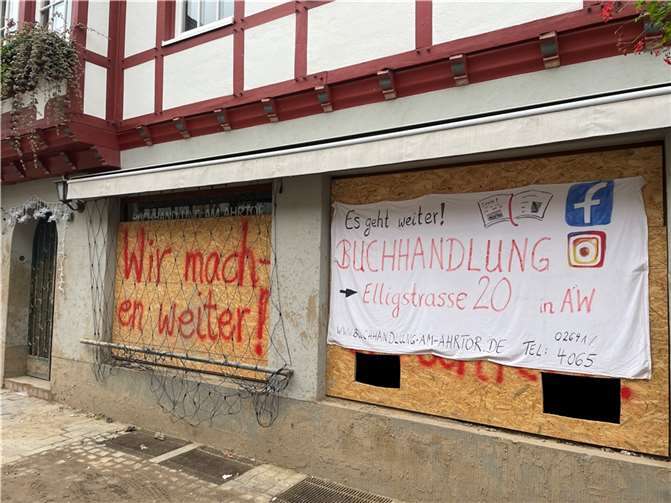 Wir mach-
en weiter!
Es geht weiter!
BUCHHANDLUNG
Elligstrasse 20 in AW
WWW.BUCHHANDLUNG-AM-AHRTOR.DE TEL: 02641/
4065